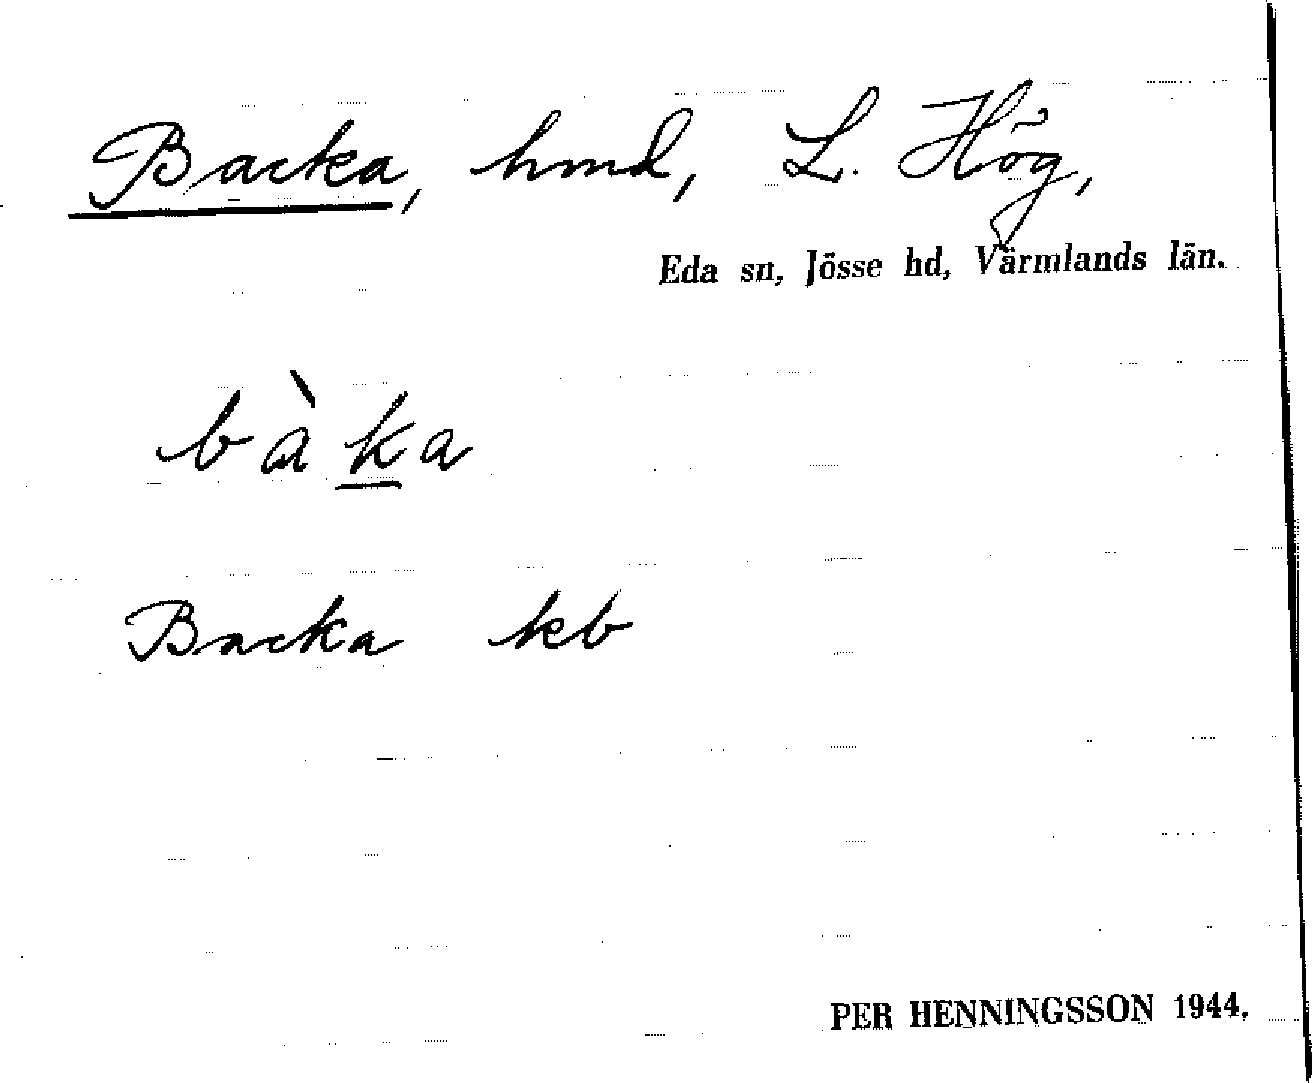 Backa, hmd, L. Hög,
Eda sn, Jösse hd, Värmlands län.
bàka
Backa kb
PER HENNINGSSON 1944.